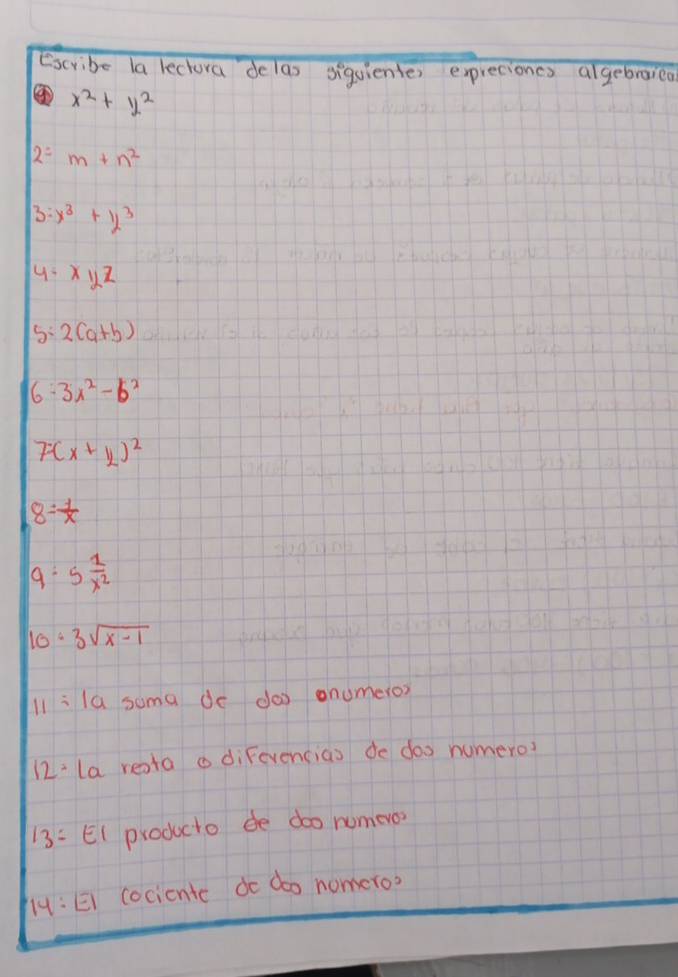 Escribe la lectura de las siguientes expreciones algebraica
1 x² + y²
2= m + n²
3=x³ + y³
4= x y z
5= 2(a+b)
6=3x² - b²
7=(x + y)²
8= 1/x
9= 5 1/x²
10= 3√x-1
11= la suma de dos numeros
12= la resta o diferencias de dos numeros
13= El producto de dos numeros
14= El cociente de dos numeros